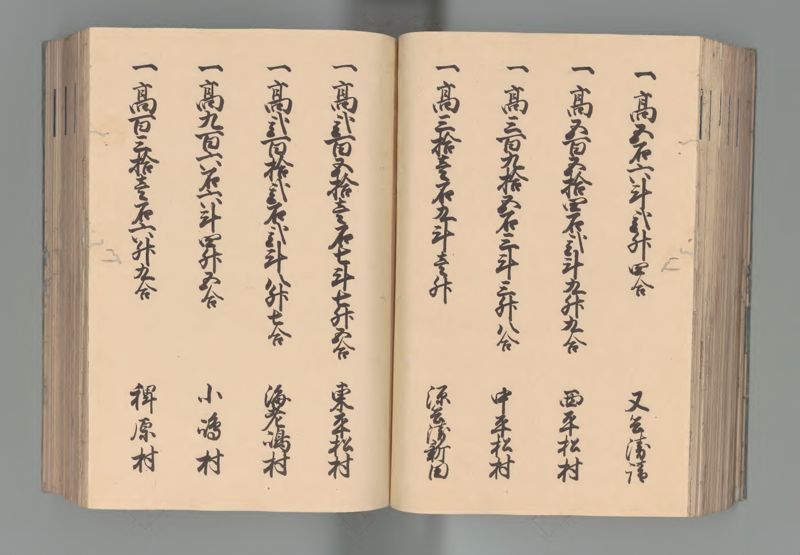 一 高五石六斗弐升四合
又兵衛請
一 高五百五拾四石弐斗九升九合
西平松村
一 高三百九拾五石三斗三升八合
中平松村
一 高三拾壱石九斗壱升
源兵衛新田
一 高弐百五拾壱石七斗七升五合
東平松村
一 高弐百拾弐石弐斗八升七合
海老嶋村
一 高九百六石六斗四升五合
小嶋村
一 高百三拾壱石六升九合
稗原村